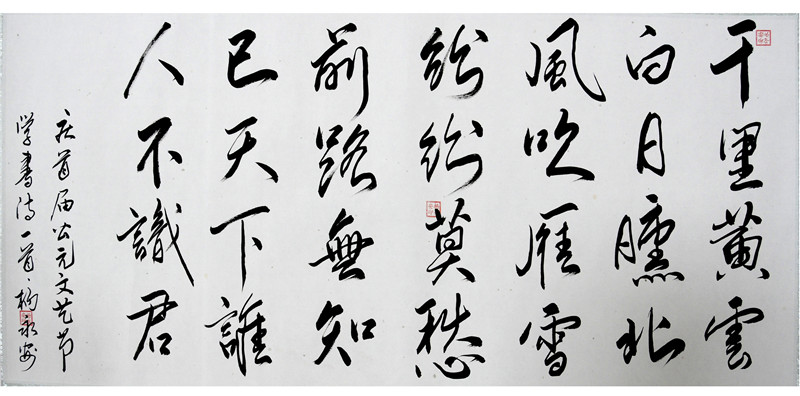 千里黄雲
白日曛北
風吹雁雪
紛紛莫愁
前路無知
已天下誰
人不識君
庆首届公元文艺节
学書诗一首 永安